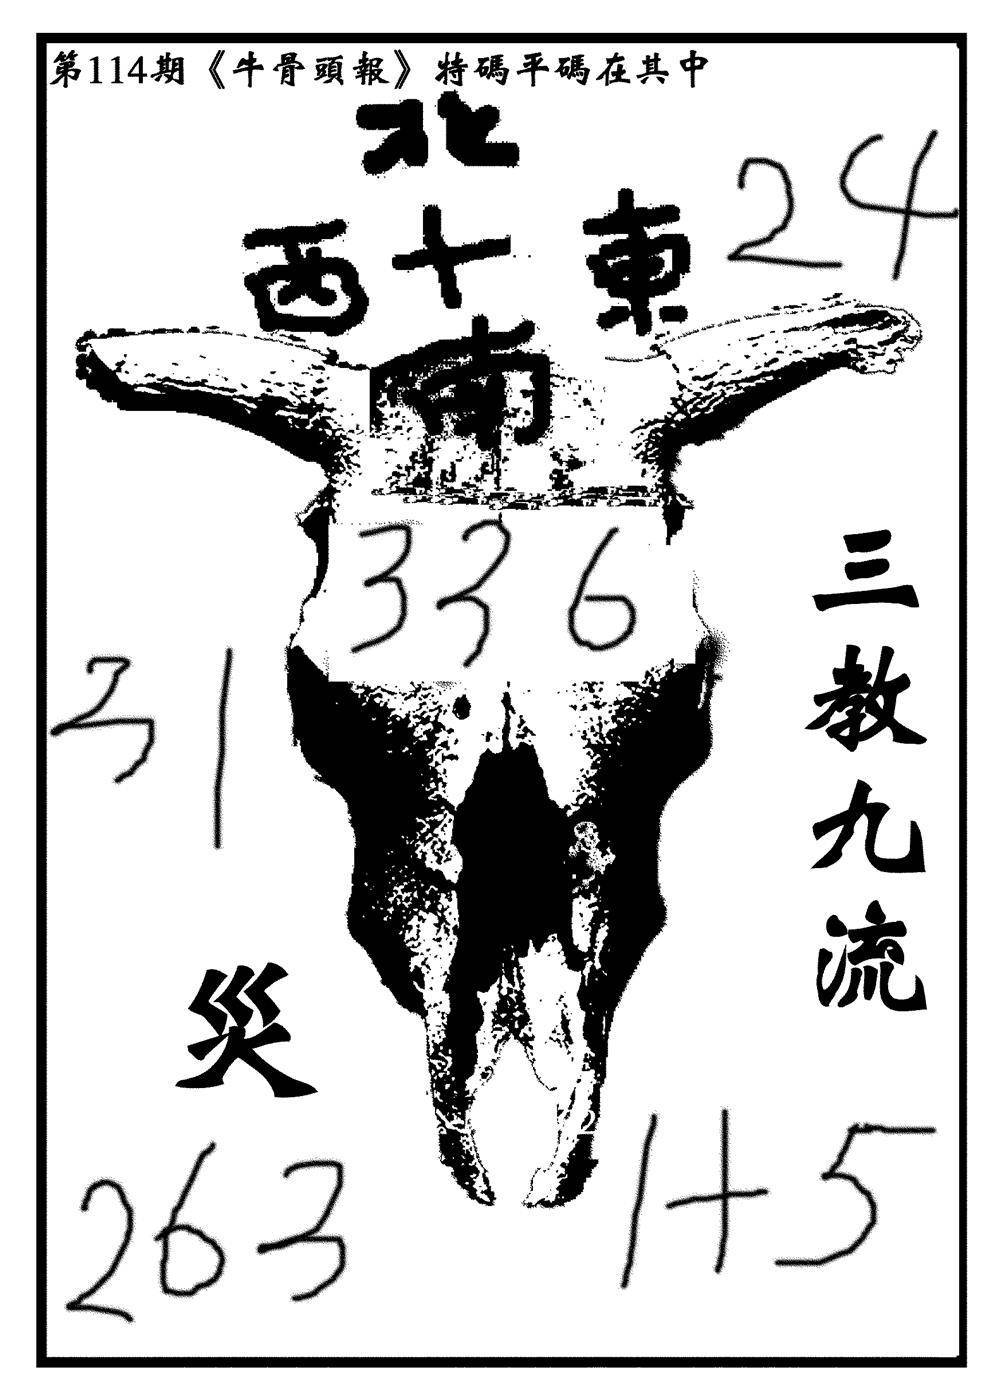 第114期《牛骨頭報》特碼平碼在其中
北
西十東
南
24
336
31
三教九流
災
263
1+5